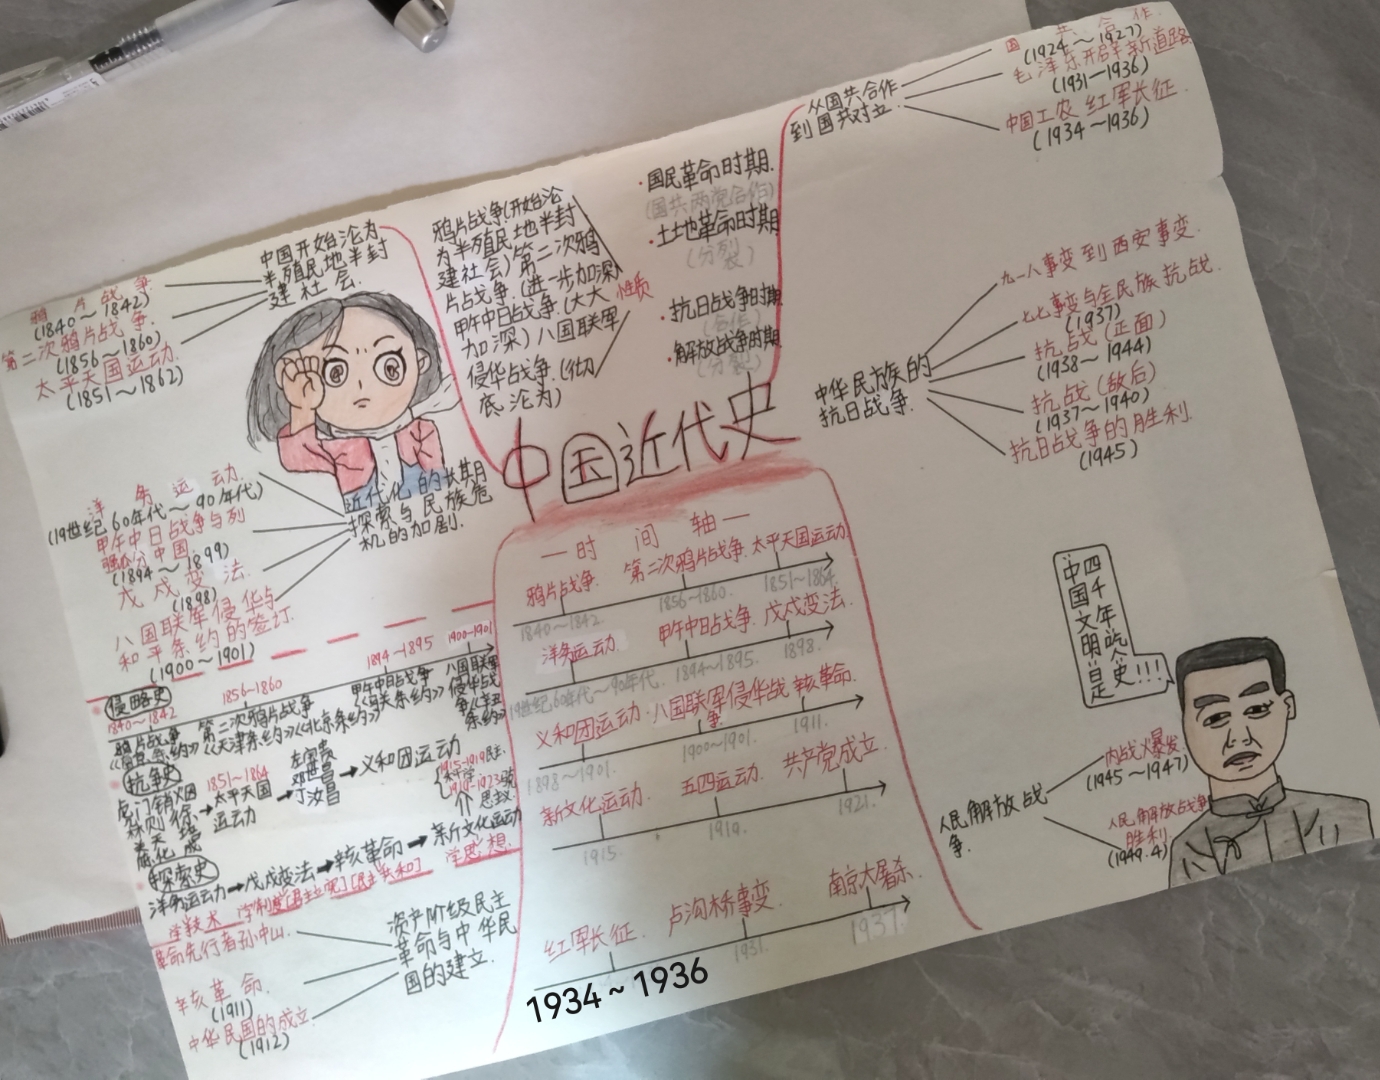 中国近代史
中国开始沦为
半殖民地半封
建社会.
鸦片战争
(1840～1842)
第二次鸦片战争.
(1856～1860)
太平天国运动.
(1851～1862)
鸦片战争(开始沦
为半殖民地半封
建社会)第二次鸦
片战争.(进一步加深)
甲午中日战争.(大大
加深)八国联军
侵华战争.(彻
底沦为)
性质
·国民革命时期.
(国共两党合作)
·土地革命时期
(分裂)
·抗日战争时期
(合作)
·解放战争时期
(分裂)
从国共合作
到国共对立.
国共合作.
(1924～1927)
毛泽东开辟新道路
(1931—1936)
中国工农红军长征.
(1934～1936)
中华民族的
抗日战争.
九一八事变到西安事变.
七七事变与全民族抗战.
(1937)
抗战(正面)
(1938～1944)
抗战(敌后)
(1937～1940)
抗日战争的胜利.
(1945)
近代化的长期
探索与民族危
机的加剧.
洋务运动.
(19世纪60年代～90年代)
甲午中日战争与列
强瓜分中国.
(1894～1899)
戊戌变法.
(1898)
八国联军侵华与
和平条约的签订.
(1900～1901)
侵略史
1840～1842
1856～1860
1894～1895
1900～1901
鸦片战争
第二次鸦片战争
《天津条约》《北京条约》
甲午中日战争
八国联军
侵华战
争《辛丑
条约》
抗争史
虎门销烟
林则徐
1851～1864
太平天国
运动
左宗棠
邓世昌
丁汝昌
义和团运动
探索史
洋务运动→戊戌变法→辛亥革命→新文化运动
学技术
学制度[君主立宪][民主共和]
学思想.
资产阶级民主
革命与中华民
国的建立.
革命先行者孙中山.
辛亥革命.
(1911)
中华民国的成立.
(1912)
—时间轴—
鸦片战争.
第二次鸦片战争.
太平天国运动
1840～1842.
1856～1860.
1851～1864.
洋务运动.
甲午中日战争.
戊戌变法.
19世纪60年代～90年代.
1894～1895.
1898.
义和团运动.
八国联军侵华战争.
辛亥革命.
1898～1901.
1900～1901.
1911.
新文化运动.
五四运动.
共产党成立.
1915.
1919.
1921.
红军长征.
卢沟桥事变.
南京大屠杀.
1934～1936
1931.
1937.
四千年吃史!!!
中国文明"曰是
人民解放战
争.
内战火爆发.
(1945～1947)
人民解放战争
胜利.
(1949.4)